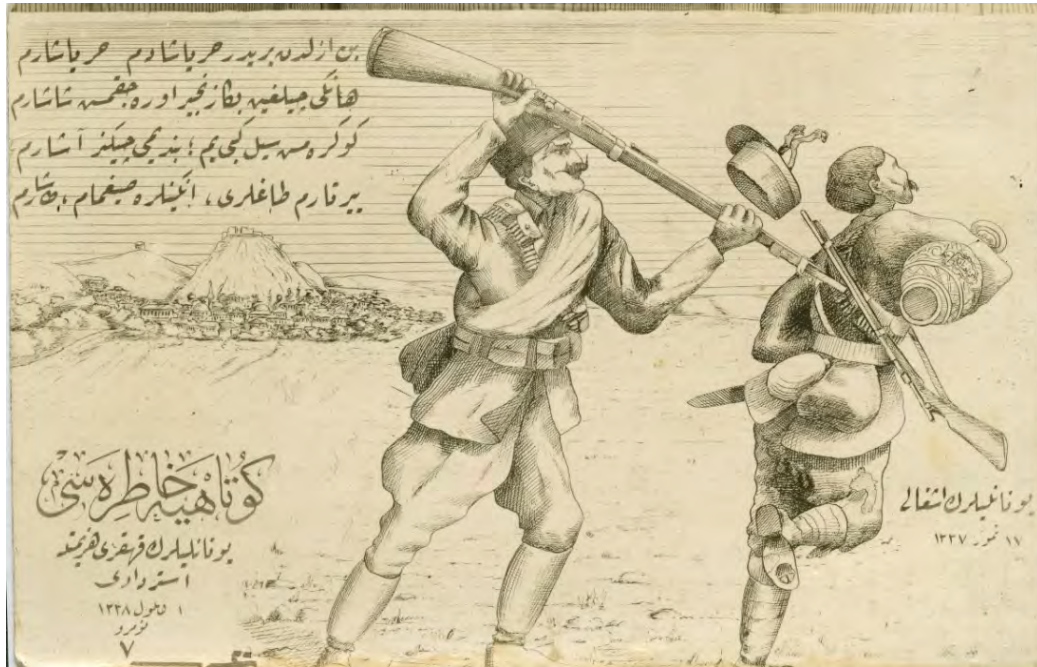 بن ازلدن بریدر حر یاشادم حر یاشارم
هانكی چیلغین بكا زنجیر اوره جقمش شاشارم
كوكره مش سیل كبی یم؛ بندیمی چیكنر آشارم
ییرتارم طاغلری، انكینلره صیغمام، طاشارم
كوتاهیه خاطره سی
یونانلیلرك قهقری هزیمتله
استردادی
١ ایلول ١٣٣٨
نومرو
٧
یونانلیلرك اشغالی
١١ تموز ١٣٣٧